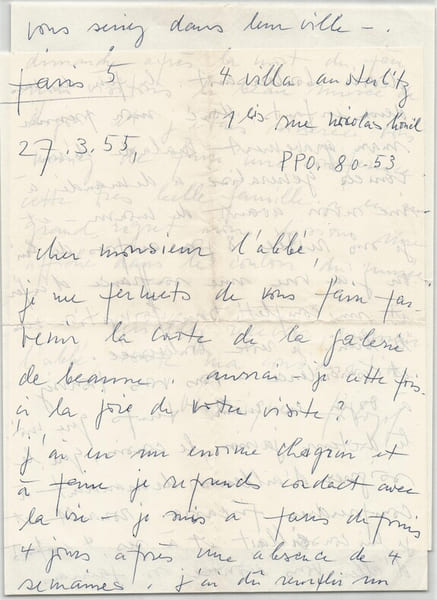 vous seriez dans leur ville -.
Paris 5
4 villa austerlitz
1 bis rue nicolas houël
27.3.55,
PPO. 80-53
cher monsieur l'abbé,
je me permets de vous faire par-
venir la carte de la galerie
de beaune. aurai je cette fois-
ci la joie de votre visite?
j'ai eu un enorme chagrin et
à peine je reprends contact avec
la vie - je suis à paris depuis
4 jours après une absence de 4
semaines. j'ai dû remplir un